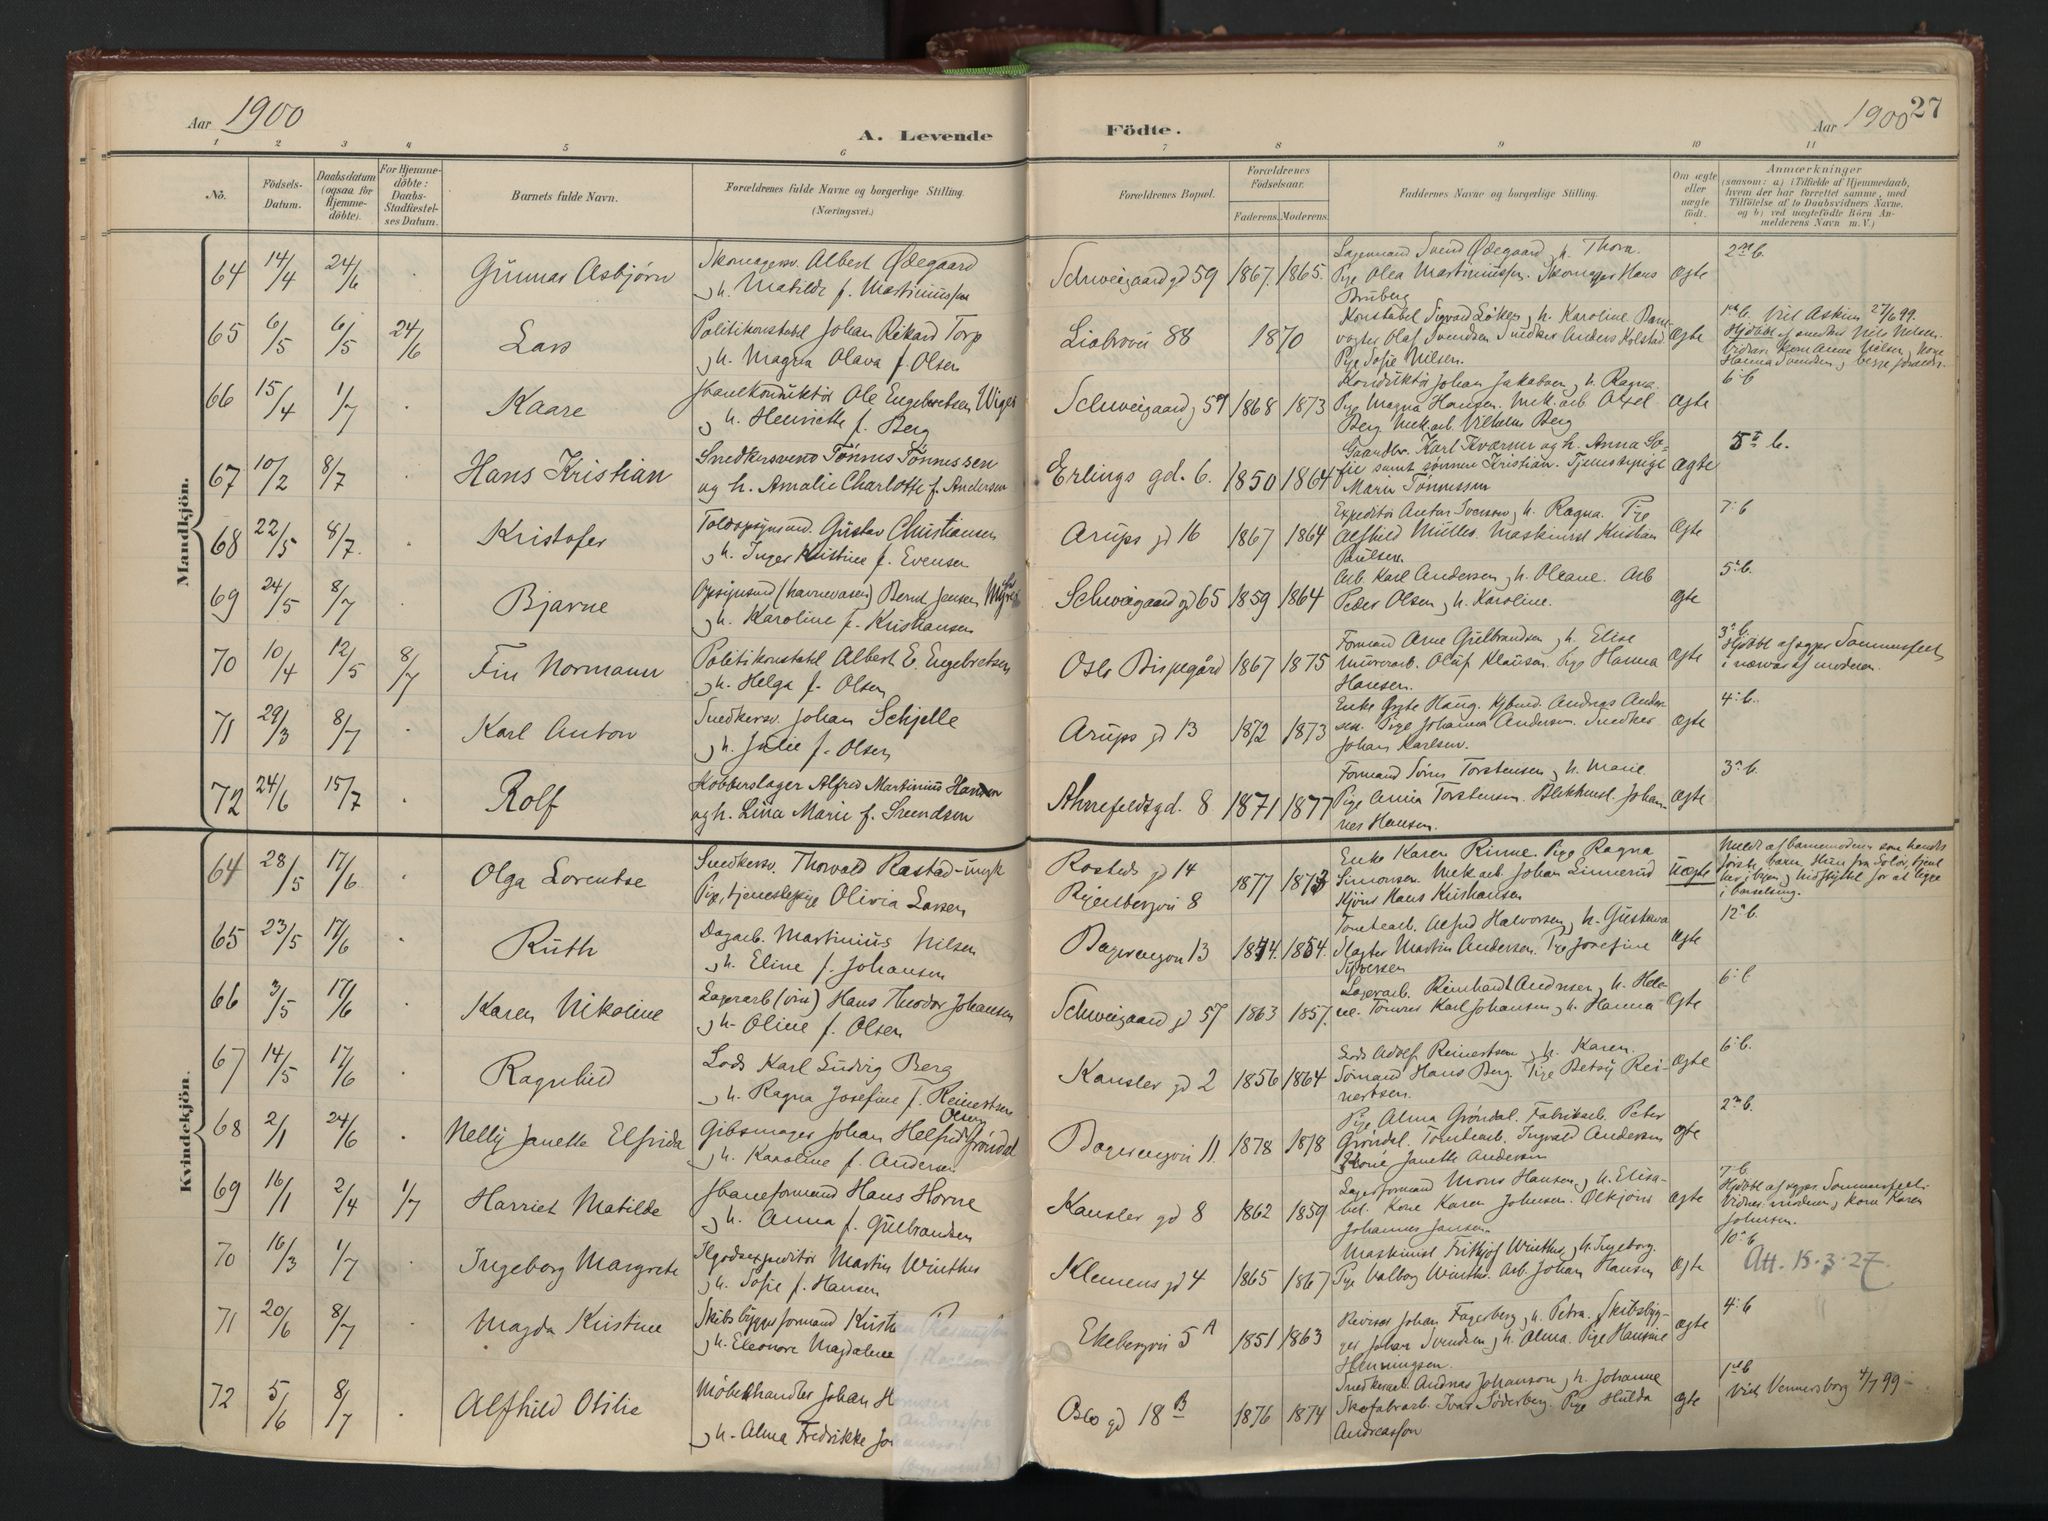 Aar 1900
A. Levende
Födte.
Aar 1900
27
1 2 3 4 5 6 7 8 9 10 11
No.
Födsels-Datum.
Daabsdatum (ogsaa for Hjemmedöbte).
For Hjemmedöbte: Daabs-Stadfæstelses Datum.
Barnets fulde Navn.
Forældrenes fulde Navne og borgerlige Stilling.
(Næringsvei.)
Forældrenes Bopæl.
Forældrenes Födselsaar.
Faderens. Moderens.
Faddernes Navne og borgerlige Stilling.
Om ægte eller uægte födt.
Anmærkninger
(saasom: a) i Tilfælde af Hjemmedaab, hvem der har forrettet samme, med Tilföielse af to Daabsvidners Navne. og b) ved uægtefödte Börn Anmelderens Navn m. V.)
Mandkjön.
64 14/4 24/6 . Gunnar Asbjørn
Skomagersv. Albert Ødegaard
og h. Matilde f. Martiniussen
Schweigaard gd 59 1867. 1865.
Lagermand Svend Ødegaard og h. Thora.
Pige Olea Martiniussen. Skomager Hans
Bruberg
Ægte 2den b.
65 6/5 6/5 24/6 Lars
Politikonstabel Johan Rikard Torp
og h. Magna Olava f. Olsen
Liabrovei 88 1870
Konstabel Sigvald Løken og h. Karoline.
Olaf Svendsen Snedker Anders Kolstad
Pige Sofie Nilsen.
Ægte
Viel Askim 27/6 99.
Hjdøbt af smedker Nils Nilsen.
Vidner: Kone Anne Nilsen, kone
Hanna Svendsen, begge
66 15/4 1/7 . Kaare
Jbanekonduktør Ole Engebretsen Wiger
og h. Henriette f. Berg
Schweigaard g 59 1868 1873
Konduktør Johan Jakobsen og h. Ragna.
Pige Magna Hansen. Mek. arb Axel
Berg Mek. arb. Vilhelm Berg
Ægte 6. b
67 10/2 8/7 . Hans Kristian
Snedkersvend Tönnes Tönnessen
og h. Amalie Charlotte f. Andersen
Erlings gd. 6. 1850 1864
Karl Kværner og h. Anna So-
fie samt sønnen Kristian. Tjenestepige
Marie Tönnessen
Ægte 5te b.
68 22/5 8/7. . Kristofer
Toldopsynsmd. Gustav Christiansen
og h. Inger Kristine f. Evensen
Arups gd 16 1867 1864
Expeditör Anton Iversen og h. Ragna. Pige
Alfhild Müller. Maskinist Kristian
Paulsen.
Ægte 7. b
69 24/5 8/7 . Bjarne
Opsynsmd (havnevæsen) Bernt Jensen
og h. Karoline f. Kristiansen
Schweigaard gd 65 1859 1864
Arb. Karl Andersen og h. Oleane. Arb
Peder Olsen og h. Karoline.
Ægte 5. b.
70 10/4 12/5 8/7 Fin Normann
Politikonstabel Albert E. Engebretsen
og h. Helga f. Olsen
Oslo Bispegård 1867 1875
Formand Arne Gulbrandsen og h. Elise
Murerarb. Oluf Klausen. Pige Hanna
Hansen.
Ægte 3. b.
Hjdøbt af sgpr Sommerfelt
i nærvær af moderen.
71 29/3 8/7 . Karl Anton
Snedkersv. Johan Schjelle
og h. Julie f. Olsen
Arups gd 13 1872 1873
Enke Gyte Haug. Andreas Ander-
sen. Pige Johanna Andersen. Snedker
Johan Karlsen.
Ægte 4. b.
72 24/6 15/7 . Rolf
Kobberslager Alfred Martinius Hansen
og h. Lina Marie f. Svendsen
Ahnefeldtsgd. 8. 1871 1877
Formand Torstensen og h. Marie
Pige Anna Torstensen. Blikkensl. Johan-
nes Hansen.
Ægte 3. b.
Kvindekjön.
64 28/5 17/6 . Olga Lorentse
Snedkersv. Thorvald Rastad - ungk
Pige, tjenestepige Olivia Larsen
Rosteds gd 14
Ryenbergvei 8
1877 1873
Enke Karen Rinne. Pige Ragna
Simonsen. Mek arb. Johan Linnerud
Hans Kristiansen
Uægte
Meldt af barnemoderen som hendes
første barn. Hun fra Solør,
her i byen og
i barselseng.
65 23/5 17/6 . Ruth
Dagarb. Martinius Nilsen
og h. Eline f. Johansen
Dagerengvei 13 1854.
Tomtearb. Alfred Halvorsen og h. Gustava
Slagter Martin Andersen. Pige Josefine
Syversen
Ægte 12. b.
66 3/5 17/6 . Karen Nikoline
Lagerarb (vin) Hans Theodor Johansen
og h. Oline f. Olsen
Schweigaard gd 57 1863 1857.
Lagerarb. Reinhardt Andersen og h. Hele-
ne. Tömrer Karl Johansen og h. Hanna
Ægte 6. b
67 14/5 17/6 . Ragnhild
Lods Karl Ludvig Berg
og h. Ragna Josefine f. Reinertsen
Kansler gd 2 1856 1864
Lods Adolf Reinertsen og h. Karen.
Sömand Hans Berg. Pige Betsy Rei-
nertsen.
Ægte 6. b.
68 2/1 24/6 . Nelly Janette Elfrida
Gibsmager Johan Helfred Olsen Gröndal
og h. Karoline f. Andersen
Dagerengvei 11. 1878 1878
Pige Alma Gröndal. Fabrikarb. Peter
Gröndal. Tomtearb. Ingvald Andersen
Kone Janette Andersen
Ægte 2den b.
69 16/1 2/4 1/7 Harriet Matilde
Jbaneformand Hans Horne
og h. Anna f. Gulbrandsen
Kansler gd 8 1862 1859
Lagerformand Mons Hansen og h. Elisa-
bet. Kone Karen Johnsen. Ölkjörer
Johannes Jansen.
Ægte 7. b
Hjdöbt af sgpr. Sommerfelt.
Vidner: moderen og kone Karen
Johnsen.
70 16/3 1/7 . Ingeborg Margrete
Ilgodsexpeditör Martin Winther
og h. Sofie f. Hansen
Klemens gd 4 1865 1867
Maskinist Fritjof Winther og h. Ingeborg.
Pige Valborg Winther. Arb. Johan Hansen
Ægte 10. b
Att. 15.3.27.
71 20/6 8/7 . Magda Kristine
Skibsbyggerformand Kristian Rasmussen
og h. Eleonore Magdalene f. Karlsen
Ekebergvei 5 A 1851 1863
Revisor Johan Fagerberg og h. Petra. Skibsbyg-
ger Johan Svendsen og h. Alma. Pige Hansine
Henningsen.
Ægte 4. b
72 5/6 8/7 . Alfhild Otilie
Möbelhandler Johan Herman
Andreasson
og h. Alma Fredrikke Johansson
Oslo gd 18 B 1876 1874
Snedkerarb. Andreas Johanson og h. Johanne
Skofabrarb. Ivar Söderberg. Pige Hulda
Andreasson
Ægte 1ste b
Viet Vennersborg 4/7 99